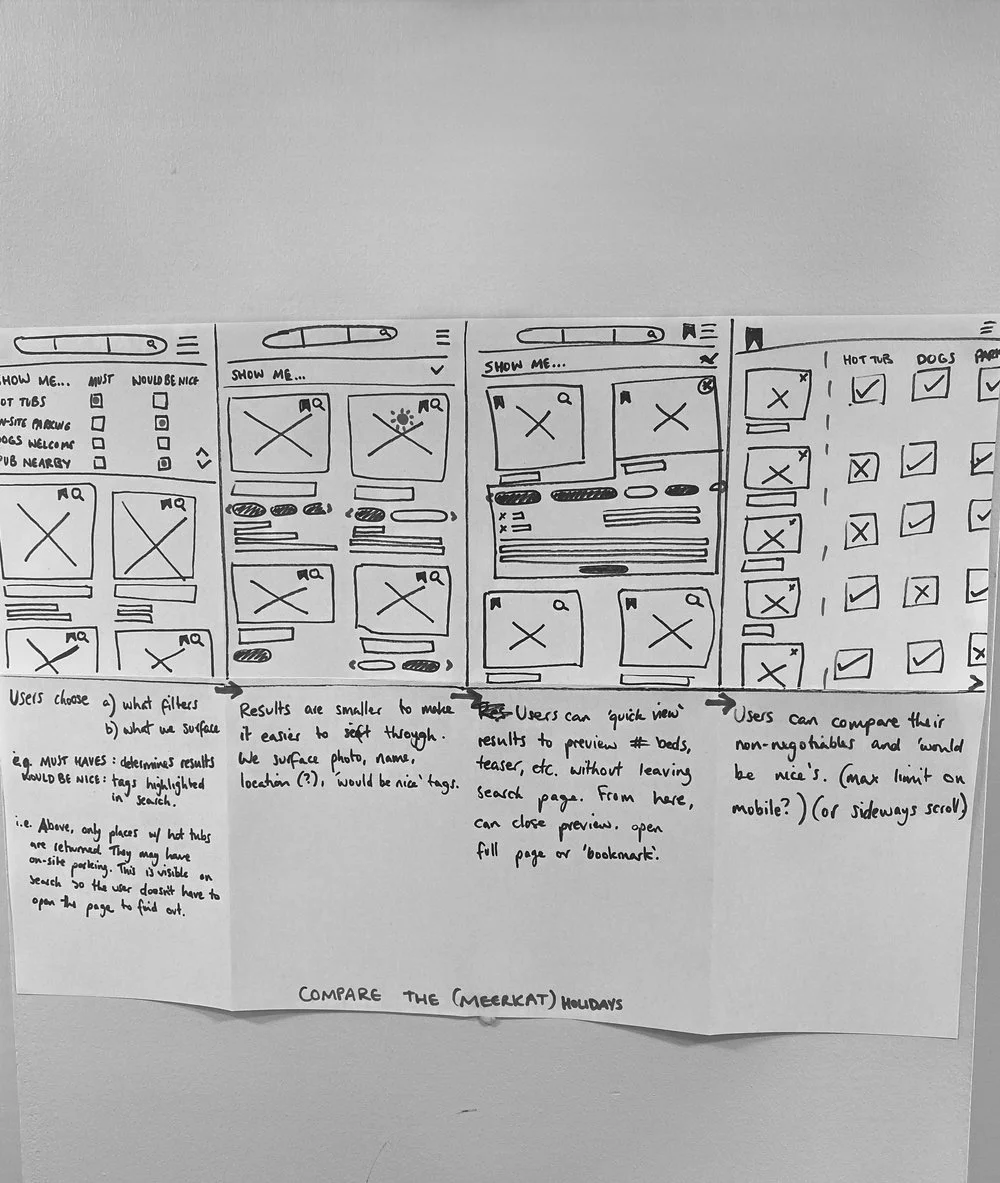 SHOW ME... MUST WOULD BE NICE
HOT TUBS
ON-SITE PARKING
DOGS WELCOME
PUB NEARBY
Users choose a) what filters
b) what we surface
e.g. MUST HAVES: determines results
WOULD BE NICE: tags highlighted
in search.
i.e. Above, only places w/ hot tubs
are returned. They may have
on-site parking. This is visible on
search so the user doesn't have to
open the page to find out.
SHOW ME...
Results are smaller to make
it easier to sift through.
We surface photo, name,
location (?), 'would be nice' tags.
SHOW ME...
Users can 'quick view'
results to preview # beds,
teaser, etc. without leaving
search page. From here,
can close preview. open
full page or 'bookmark'.
HOT TUB DOGS PARK
Users can compare their
non-negotiables and 'would
be nice's. (max limit on
mobile?) (or sideways scroll)
COMPARE THE (MEERKAT) HOLIDAYS